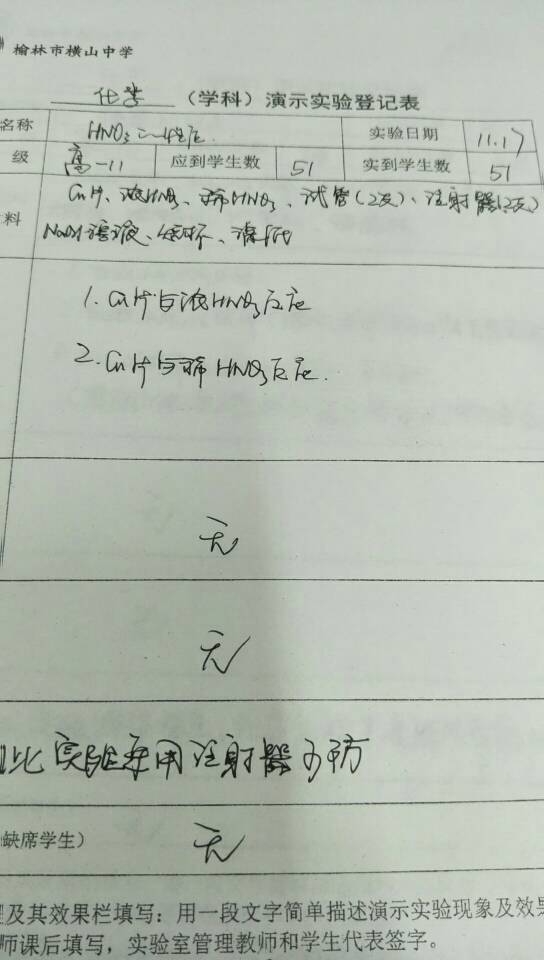 榆林市横山中学
化学 （学科）演示实验登记表
名称 HNO₃的性质 实验日期 11.17
级 高一11 应到学生数 51 实到学生数 51
料 Cu片、浓HNO₃、稀HNO₃、试管(2支)、注射器(2支)
NaOH溶液、烧杯、滤纸
1. Cu片与浓HNO₃反应
2. Cu片与稀HNO₃反应.
无
无
此实验采用注射器
缺席学生） 无
及其效果栏填写：用一段文字简单描述演示实验现象及效果
师课后填写，实验室管理教师和学生代表签字。